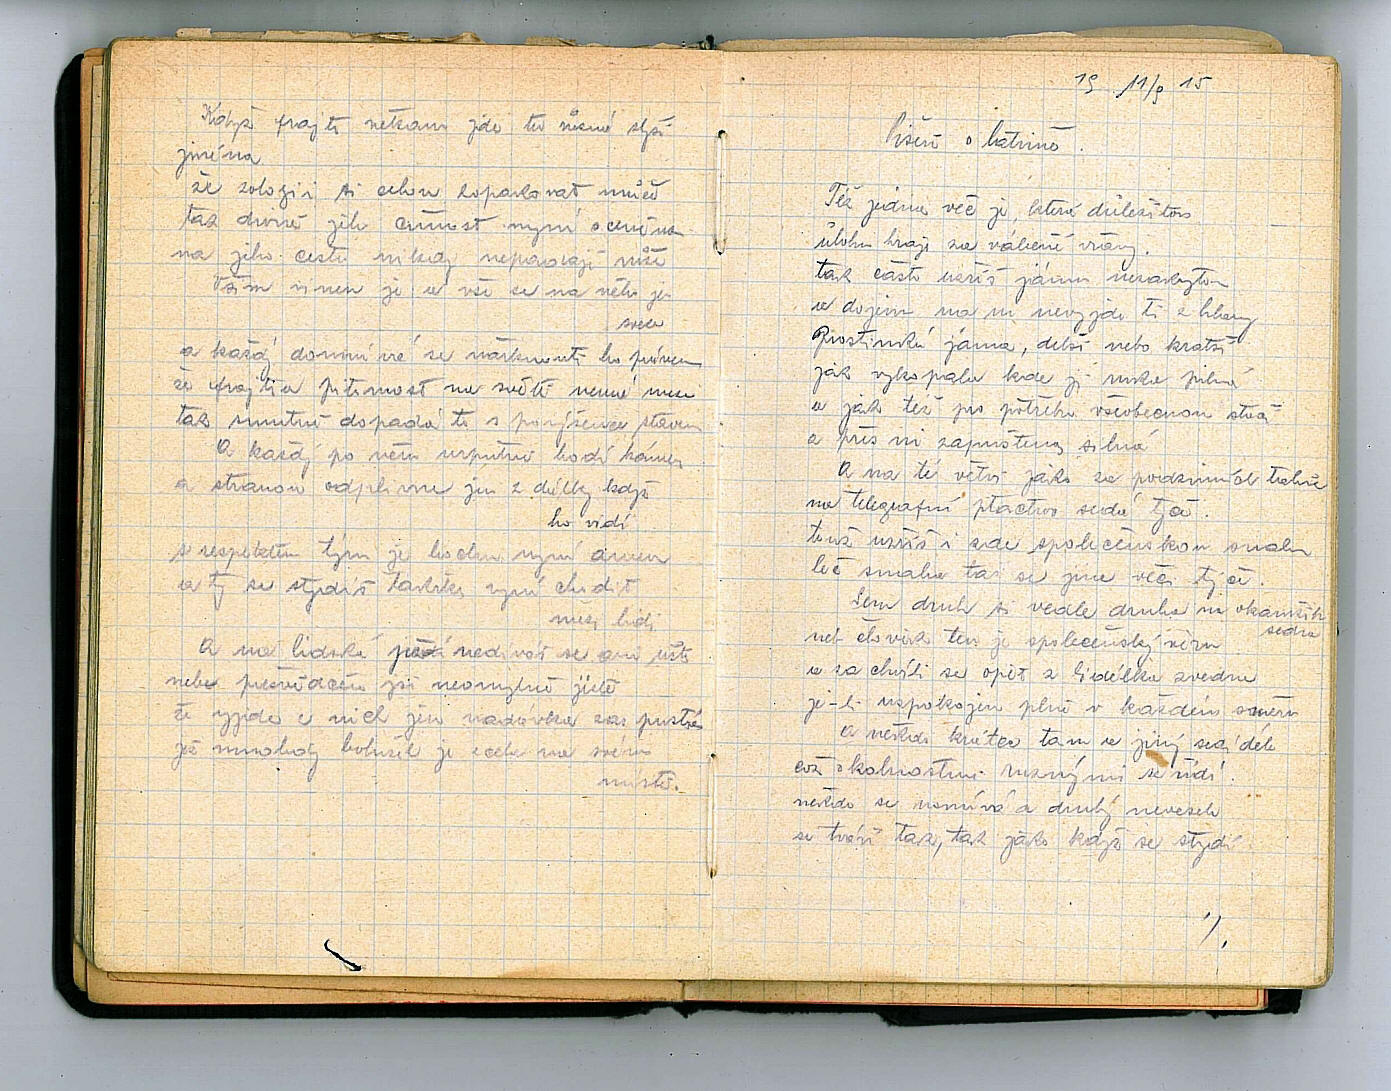 Když frajti netkam jde tu různé slyší
jména
že zoologii si celou zoparkovat může
tak divině jeho ctnost nyní oceněna
na jeho cestu nikdy neporostají růže
Vším vinen je a vše se na něho je
svece
a každý domnívá se nařknouti ho právem
že frajtra pitomost na světě nemá meze
tak smutně dopadá to s povýšence stavem
A každý po něm urputně hodí kámen
a stranou odplivne jen z dálky když
ho vidí
s respektem tým je bodem nyní amen
a ty se stydíš nyní chodit
mezi lidi
A na lidská nedíváš se ani ústa
neb přesvědčen jsi neomylně jistě
že vyjde z nich jen nadávka zas pustá
jež mnohdy bohužel je zcela na svém
místě.
19 11/9 15
Píseň o latrině.
Též jedna věc je, která důležitou
úlohu hraje za válečné vřavy.
tak často uzříš jámu nezakrytou
a dojem na ni nevyjde ti z hlavy
Prostinká jáma, delší nebo kratší
jak vykopala kde ji ruka pilná
a jak též pro potřebu všeobecnou stačí
a přes ni zapuštěna silná
A na té větvi jako za podzimních
na telegrafní ptactvo sedá tyč.
touž uzříš i zde společenskou snahu
leč snaha ta se jine věci týče.
Sem druh si vedle druha na okamžik
sedna
neb člověk ten je společenský
a za chvíli se opět z bidélka zvedne
je-li uspokojen plně v každém směru
a někdo krátce tam a jiný sedí déle
což okolnostmi ruznými se řídí.
někdo se usmívá a druhý nevesele
se tváří tak, tak jako když se stydí
%.